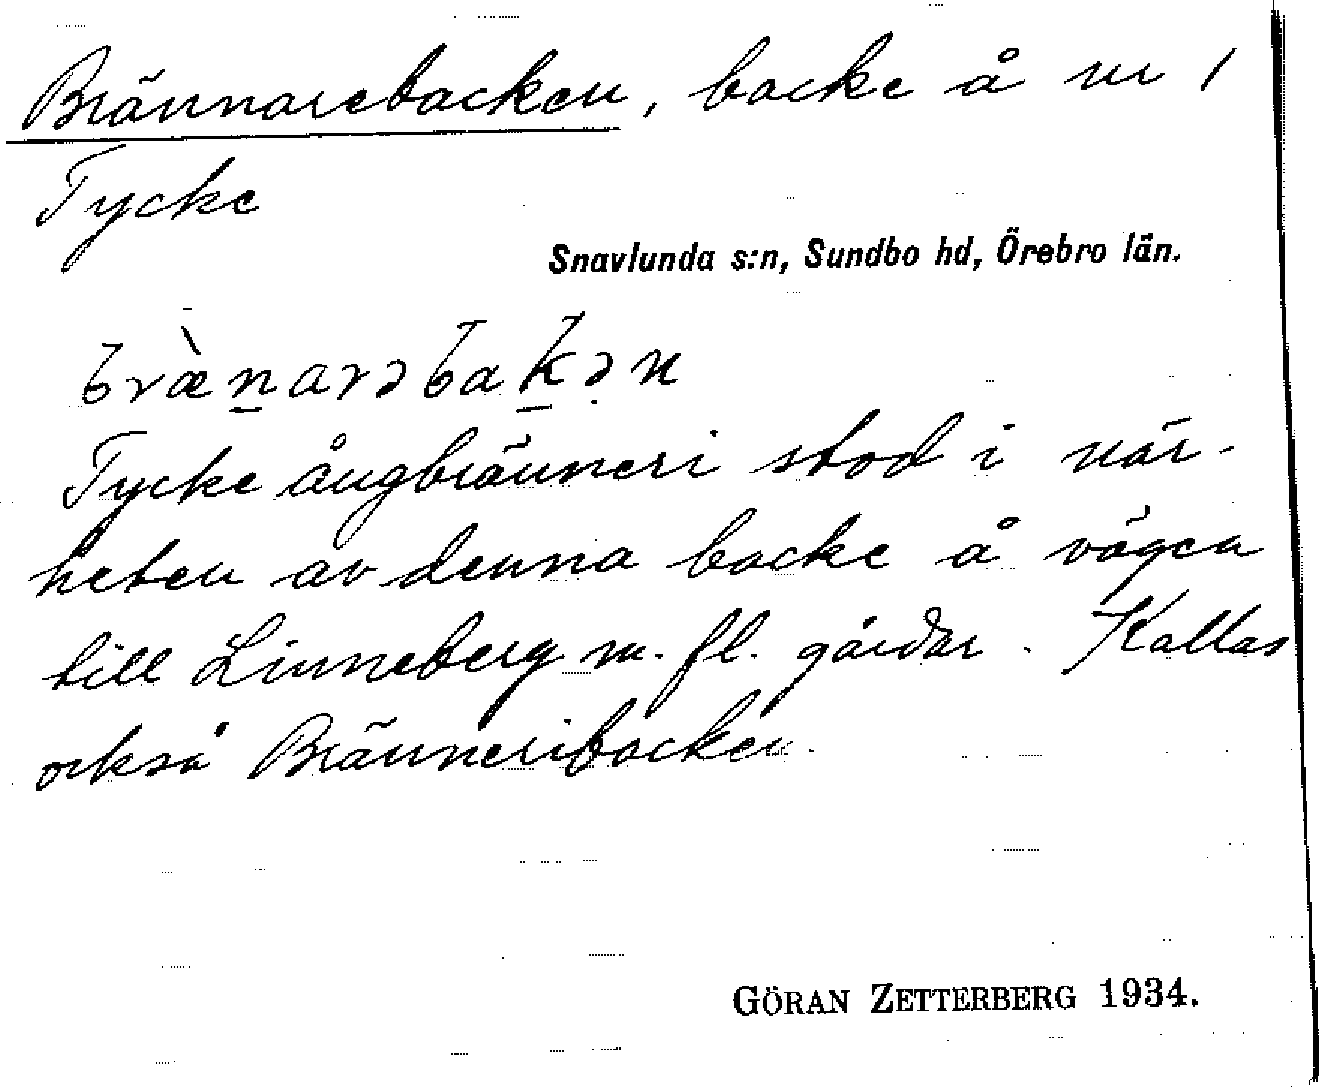 Brännarebacken, backe å nr 1
Tycke
Snavlunda s:n, Sundbo hd, Örebro län.
bræ̀n̲arəbak̲ən
Tycke ångbränneri stod i när-
heten av denna backe å vägen
till Linneberg m. fl. gårdar. Kallas
också Bränneribacken.
GÖRAN ZETTERBERG 1934.